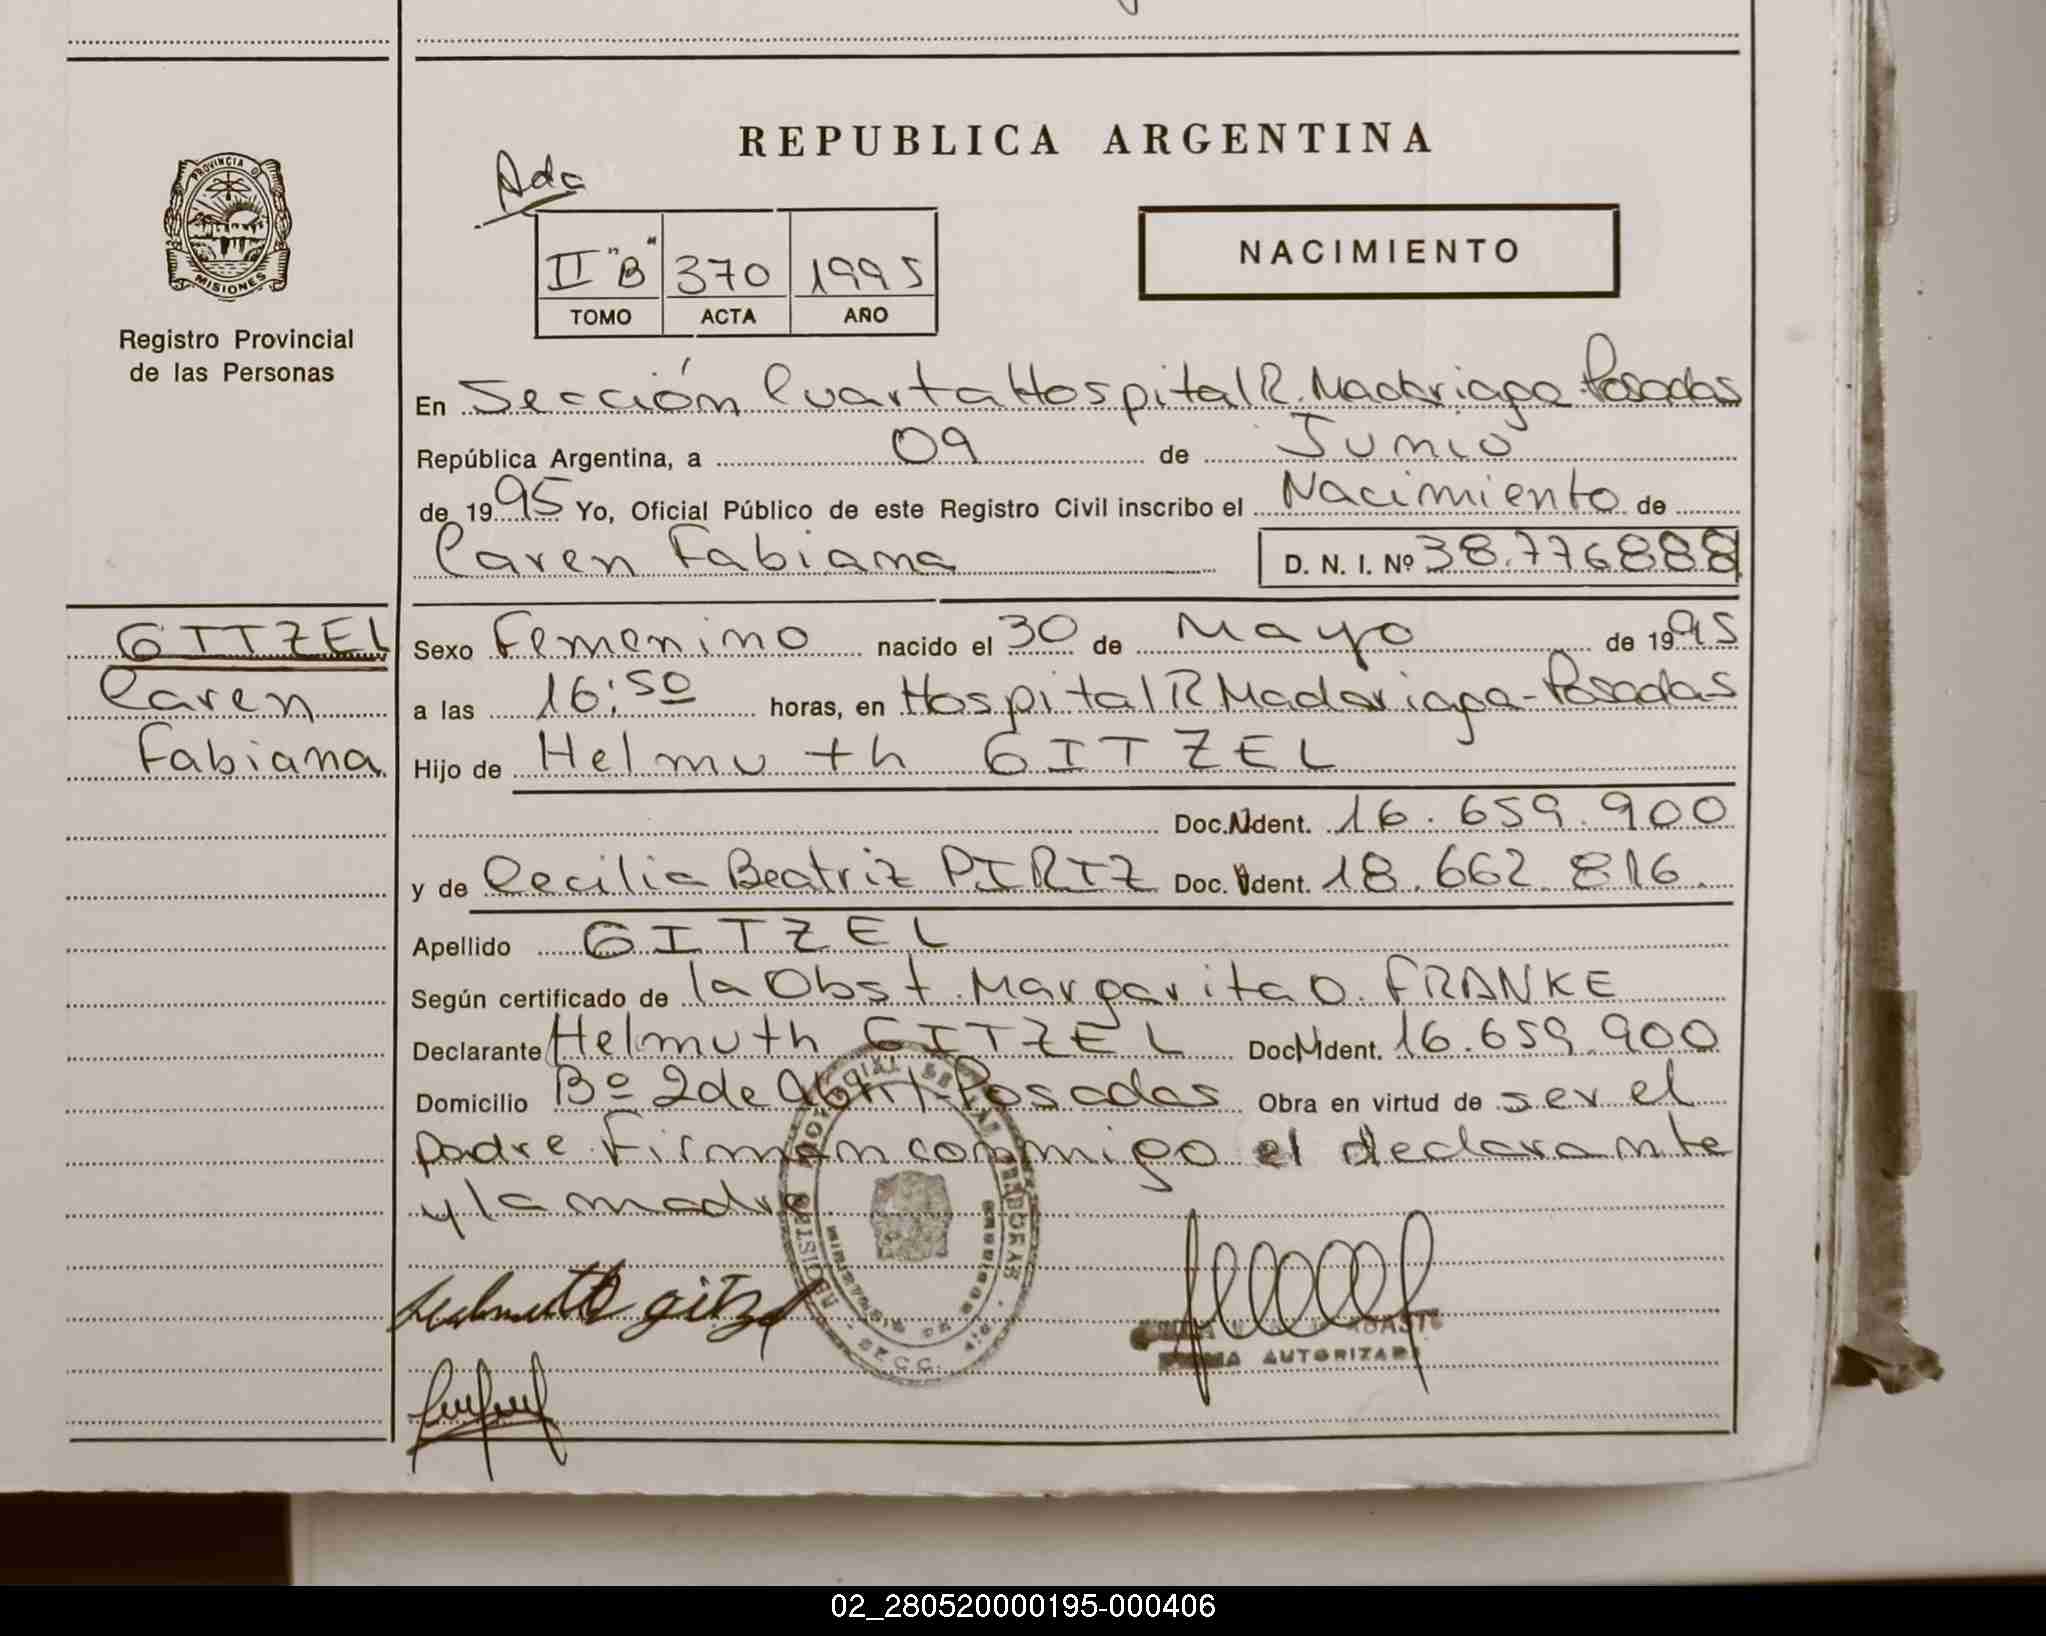 REPUBLICA ARGENTINA
Ada
PROVINCIA DE
MISIONES
Registro Provincial
de las Personas
II "B" 370 1995
TOMO ACTA AÑO
NACIMIENTO
En Sección Cuarta Hospital R. Madariaga - Posadas
República Argentina, a 09 de Junio
de 1995 Yo, Oficial Público de este Registro Civil inscribo el Nacimiento de
Caren Fabiana D. N. I. Nº 38.776888
GITZEL
Caren
Fabiana
Sexo Femenino nacido el 30 de Mayo de 1995
a las 16:50 horas, en Hospital R Madariaga - Posadas
Hijo de Helmuth GITZEL
Doc. Ident. 16.659.900
y de Cecilia Beatriz PIRIZ Doc. Ident. 18.662.816
Apellido GITZEL
Según certificado de la Obst. Margarita O. FRANKE
Declarante Helmuth GITZEL Doc. Ident. 16.659.900
Domicilio Bº 2 de Abril - Posadas Obra en virtud de ser el
padre. Firman conmigo el declarante
y la madre
Helmuth Gitzel
FIRMA AUTORIZADA
02_280520000195-000406